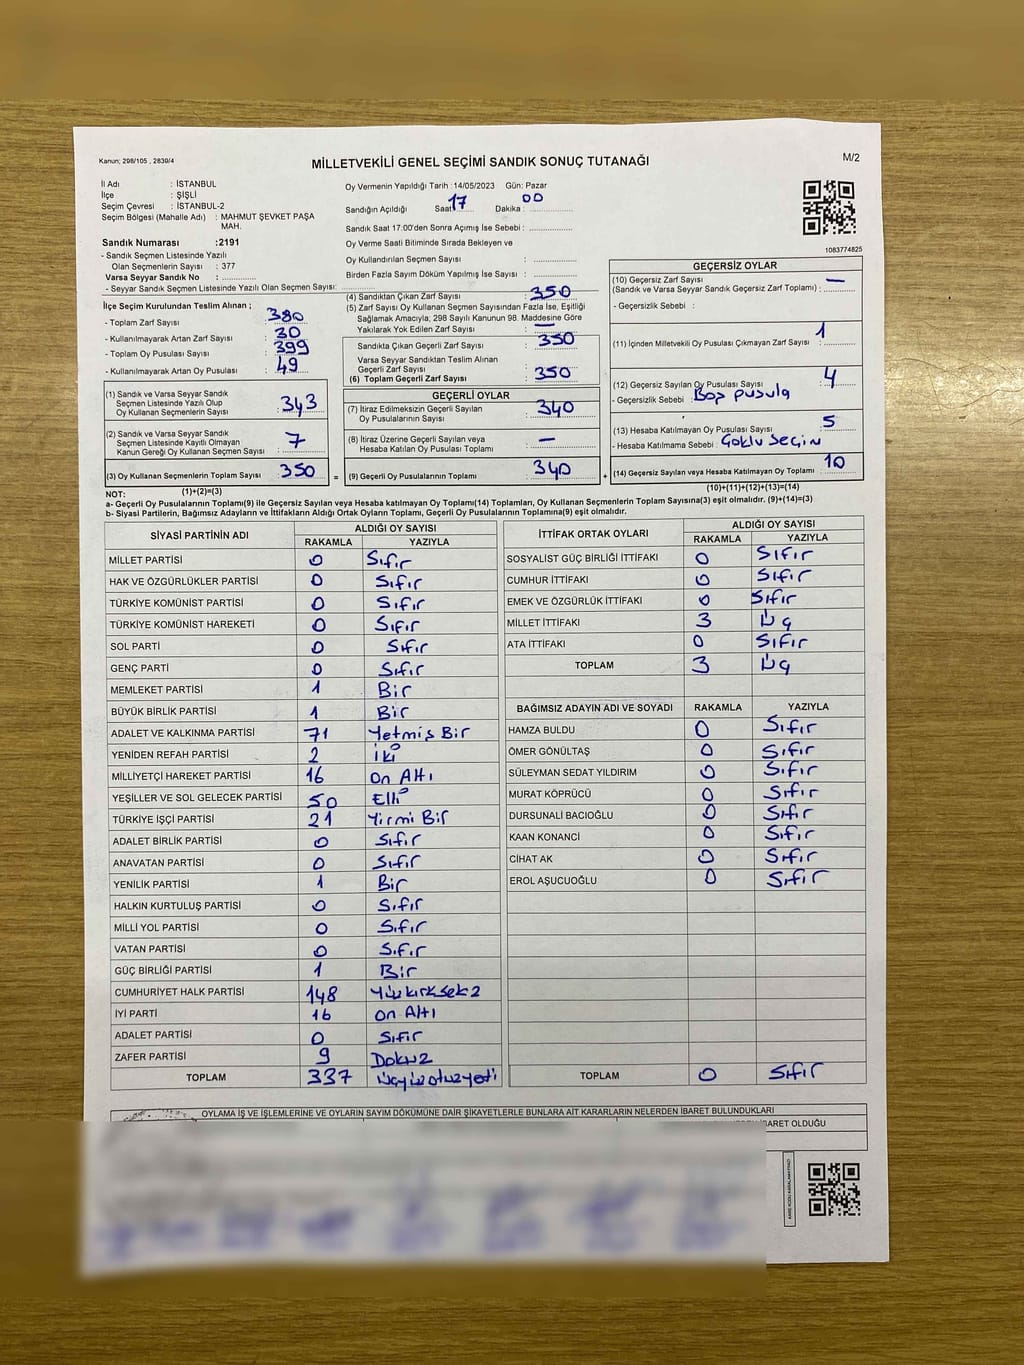 Kanun; 298/105 , 2839/4
MİLLETVEKİLİ GENEL SEÇİMİ SANDIK SONUÇ TUTANAĞI
M/2
İl Adı : İSTANBUL
İlçe : ŞİŞLİ
Seçim Çevresi : İSTANBUL-2
Seçim Bölgesi (Mahalle Adı) : MAHMUT ŞEVKET PAŞA
MAH.
Sandık Numarası :2191
- Sandık Seçmen Listesinde Yazılı
Olan Seçmenlerin Sayısı : 377
Varsa Seyyar Sandık No :
- Seyyar Sandık Seçmen Listesinde Yazılı Olan Seçmen Sayısı:
Oy Vermenin Yapıldığı Tarih : 14/05/2023 Gün: Pazar
Sandığın Açıldığı Saat 17 Dakika : 00
Sandık Saat 17:00'den Sonra Açımış İse Sebebi :
Oy Verme Saati Bitiminde Sırada Bekleyen ve
Oy Kullandırılan Seçmen Sayısı :
Birden Fazla Sayım Döküm Yapılmış İse Sayısı :
1083774825
İlçe Seçim Kurulundan Teslim Alınan ;
- Toplam Zarf Sayısı : 380
- Kullanılmayarak Artan Zarf Sayısı : 30
- Toplam Oy Pusulası Sayısı : 399
- Kullanılmayarak Artan Oy Pusulası : 49
(1) Sandık ve Varsa Seyyar Sandık
Seçmen Listesinde Yazılı Olup
Oy Kullanan Seçmenlerin Sayısı : 343
(2) Sandık ve Varsa Seyyar Sandık
Seçmen Listesinde Kayıtlı Olmayan
Kanun Gereği Oy Kullanan Seçmen Sayısı : 7
(3) Oy Kullanan Seçmenlerin Toplam Sayısı : 350
(1)+(2)=(3)
(4) Sandıktan Çıkan Zarf Sayısı : 350
(5) Zarf Sayısı Oy Kullanan Seçmen Sayısından Fazla İse, Eşitliği
Sağlamak Amacıyla; 298 Sayılı Kanunun 98. Maddesine Göre
Yakılarak Yok Edilen Zarf Sayısı : —
Sandıkta Çıkan Geçerli Zarf Sayısı : 350
Varsa Seyyar Sandıktan Teslim Alınan
Geçerli Zarf Sayısı :
(6) Toplam Geçerli Zarf Sayısı : 350
GEÇERLİ OYLAR
(7) İtiraz Edilmeksizin Geçerli Sayılan
Oy Pusulalarının Sayısı : 340
(8) İtiraz Üzerine Geçerli Sayılan veya
Hesaba Katılan Oy Pusulası Toplamı : —
= (9) Geçerli Oy Pusulalarının Toplamı : 340 +
GEÇERSİZ OYLAR
(10) Geçersiz Zarf Sayısı
(Sandık ve Varsa Seyyar Sandık Geçersiz Zarf Toplamı) : —
- Geçersizlik Sebebi :
(11) İçinden Milletvekili Oy Pusulası Çıkmayan Zarf Sayısı : 1
(12) Geçersiz Sayılan Oy Pusulası Sayısı : 4
- Geçersizlik Sebebi : Boş pusula
(13) Hesaba Katılmayan Oy Pusulası Sayısı : 5
- Hesaba Katılmama Sebebi : Çoklu Seçin
(14) Geçersiz Sayılan veya Hesaba Katılmayan Oy Toplamı : 10
(10)+(11)+(12)+(13)=(14)
NOT:
a- Geçerli Oy Pusulalarının Toplamı(9) ile Geçersiz Sayılan veya Hesaba katılmayan Oy Toplamı(14) Toplamları, Oy Kullanan Seçmenlerin Toplam Sayısına(3) eşit olmalıdır. (9)+(14)=(3)
b- Siyasi Partilerin, Bağımsız Adayların ve İttifakların Aldığı Ortak Oyların Toplamı, Geçerli Oy Pusulalarının Toplamına(9) eşit olmalıdır.
SİYASİ PARTİNİN ADI ALDIĞI OY SAYISI
RAKAMLA YAZIYLA
MİLLET PARTİSİ 0 Sıfır
HAK VE ÖZGÜRLÜKLER PARTİSİ 0 Sıfır
TÜRKİYE KOMÜNİST PARTİSİ 0 Sıfır
TÜRKİYE KOMÜNİST HAREKETİ 0 Sıfır
SOL PARTİ 0 Sıfır
GENÇ PARTİ 0 Sıfır
MEMLEKET PARTİSİ 1 Bir
BÜYÜK BİRLİK PARTİSİ 1 Bir
ADALET VE KALKINMA PARTİSİ 71 Yetmiş Bir
YENİDEN REFAH PARTİSİ 2 İki
MİLLİYETÇİ HAREKET PARTİSİ 16 On Altı
YEŞİLLER VE SOL GELECEK PARTİSİ 50 Elli
TÜRKİYE İŞÇİ PARTİSİ 21 Yirmi Bir
ADALET BİRLİK PARTİSİ 0 Sıfır
ANAVATAN PARTİSİ 0 Sıfır
YENİLİK PARTİSİ 1 Bir
HALKIN KURTULUŞ PARTİSİ 0 Sıfır
MİLLİ YOL PARTİSİ 0 Sıfır
VATAN PARTİSİ 0 Sıfır
GÜÇ BİRLİĞİ PARTİSİ 1 Bir
CUMHURİYET HALK PARTİSİ 148 Yüzkırksekiz
İYİ PARTİ 16 On Altı
ADALET PARTİSİ 0 Sıfır
ZAFER PARTİSİ 9 Dokuz
TOPLAM 337 üçyüzotuzyedi
İTTİFAK ORTAK OYLARI ALDIĞI OY SAYISI
RAKAMLA YAZIYLA
SOSYALIST GÜÇ BİRLİĞİ İTTİFAKI 0 Sıfır
CUMHUR İTTİFAKI 0 Sıfır
EMEK VE ÖZGÜRLÜK İTTİFAKI 0 Sıfır
MİLLET İTTİFAKI 3 Üç
ATA İTTİFAKI 0 Sıfır
TOPLAM 3 Üç
BAĞIMSIZ ADAYIN ADI VE SOYADI RAKAMLA YAZIYLA
HAMZA BULDU 0 Sıfır
ÖMER GÖNÜLTAŞ 0 Sıfır
SÜLEYMAN SEDAT YILDIRIM 0 Sıfır
MURAT KÖPRÜCÜ 0 Sıfır
DURSUNALİ BACIOĞLU 0 Sıfır
KAAN KONANCİ 0 Sıfır
CİHAT AK 0 Sıfır
EROL AŞUCUOĞLU 0 Sıfır
TOPLAM 0 Sıfır
OYLAMA İŞ VE İŞLEMLERİNE VE OYLARIN SAYIM DÖKÜMÜNE DAİR ŞİKAYETLERLE BUNLARA AİT KARARLARIN NELERDEN İBARET BULUNDUKLARI
İBARET OLDUĞU